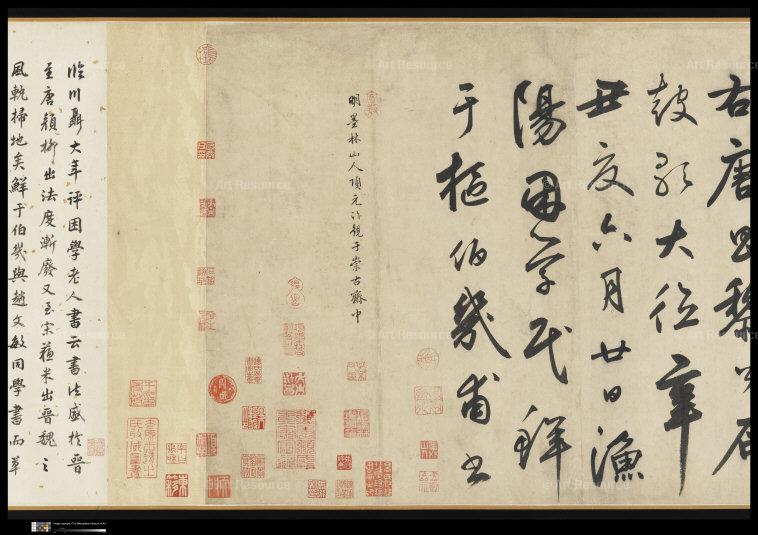 右唐昌黎公石
鼓歌大德辛
丑夏六月廿日漁
陽困學民鮮
于樞伯幾甫書
明墨林山人項元汴觀于崇古齋中
臨川聶大年評困學老人書云書法盛於晉
至唐顏柳出法度漸廢又至宋蘇米出晉魏之
風軌掃地矣鮮于伯幾與趙文敏同學書而草
© Art Resource